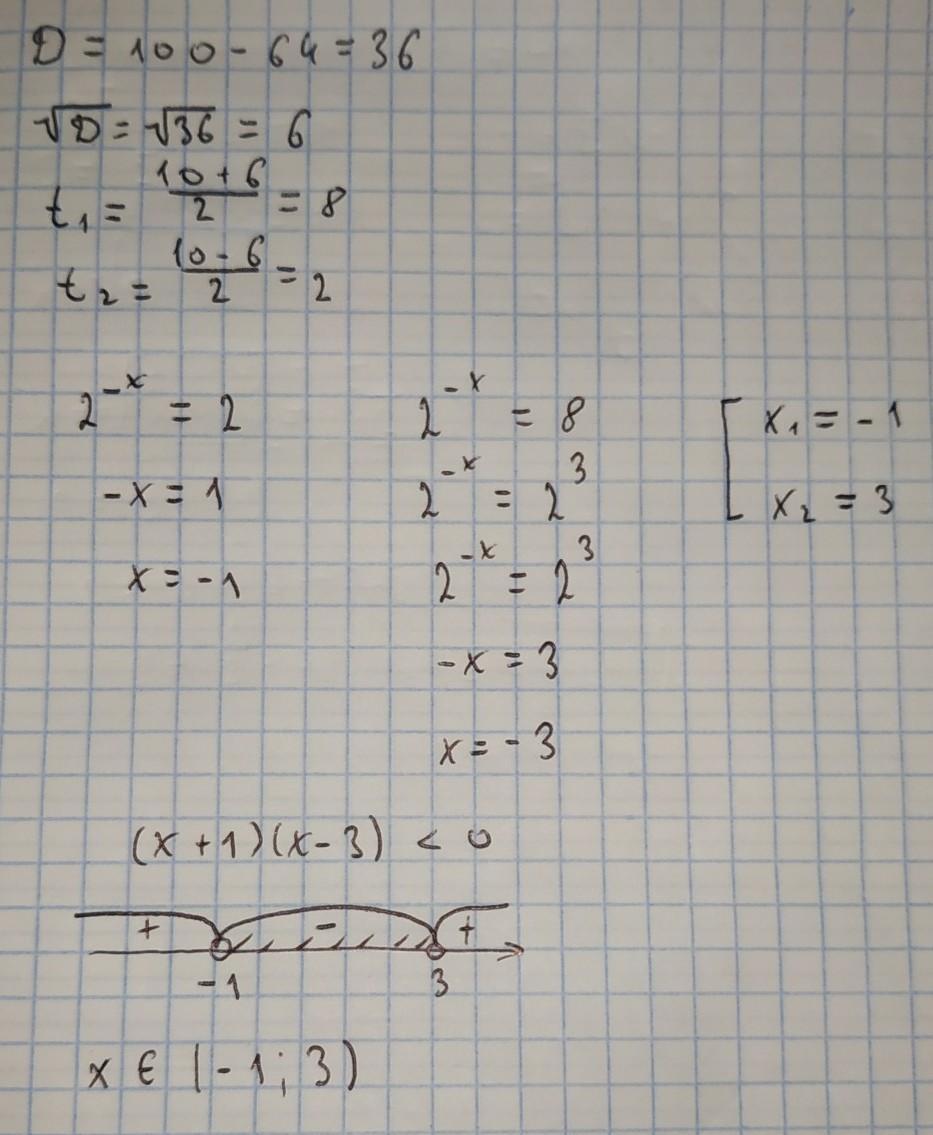 D = 100 - 64 = 36
√D = √36 = 6
t₁ = (10 + 6)/2 = 8
t₂ = (10 - 6)/2 = 2
2^(-x) = 2    2^(-x) = 8    [ x₁ = -1
-x = 1    2^(-x) = 2³    x₂ = 3
x = -1    2^(-x) = 2³
-x = 3
x = -3
(x + 1)(x - 3) < 0
+ - +
-1 3
x ∈ (-1; 3)